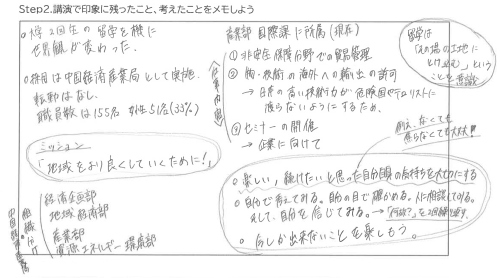 Step2.講演で印象に残ったこと、考えたことをメモしよう
○大学2回生の留学を機に
世界観が変わった。
○採用は中国経済産業局として実施
転勤はなし。
職員数は155名 女性51名(33%)
ミッション
「地域をより良くしていくために!」
経済企画部
地域経済部
産業部
資源エネルギー環境部
産業部 国際課に所属(現在)
①非安全保障分野での貿易管理
②物・技術の海外への輸出の許可
→日本の高い技術力が危険国やテロリストに
渡らないようにするため。
③セミナーの開催
→企業に向けて
留学は
「その場の土地に
とけ込む」という
ことを意識
なくても
焦らなくても大丈夫!!
○楽しい、続けたいと思った自分自身の気持ちを大切にする
○自分で考えてみる。自分の目で確かめる。人に相談してみる。
そして、自分を信じてみる。→「何故?」を2回繰り返す。
○今しか出来ないことを楽しもう。